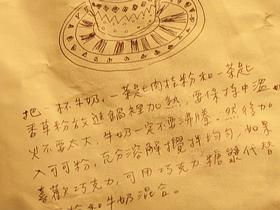 把一杯牛奶，一茶匙肉桂粉和一茶匙
香草粉放進鍋裡加熱，要保持中溫
火不要太大，牛奶一定不要沸騰。然後加
入可可粉，充分溶解攪拌均勻，如果
喜歡巧克力，可用巧克力糖漿代替
粉和牛奶混合。